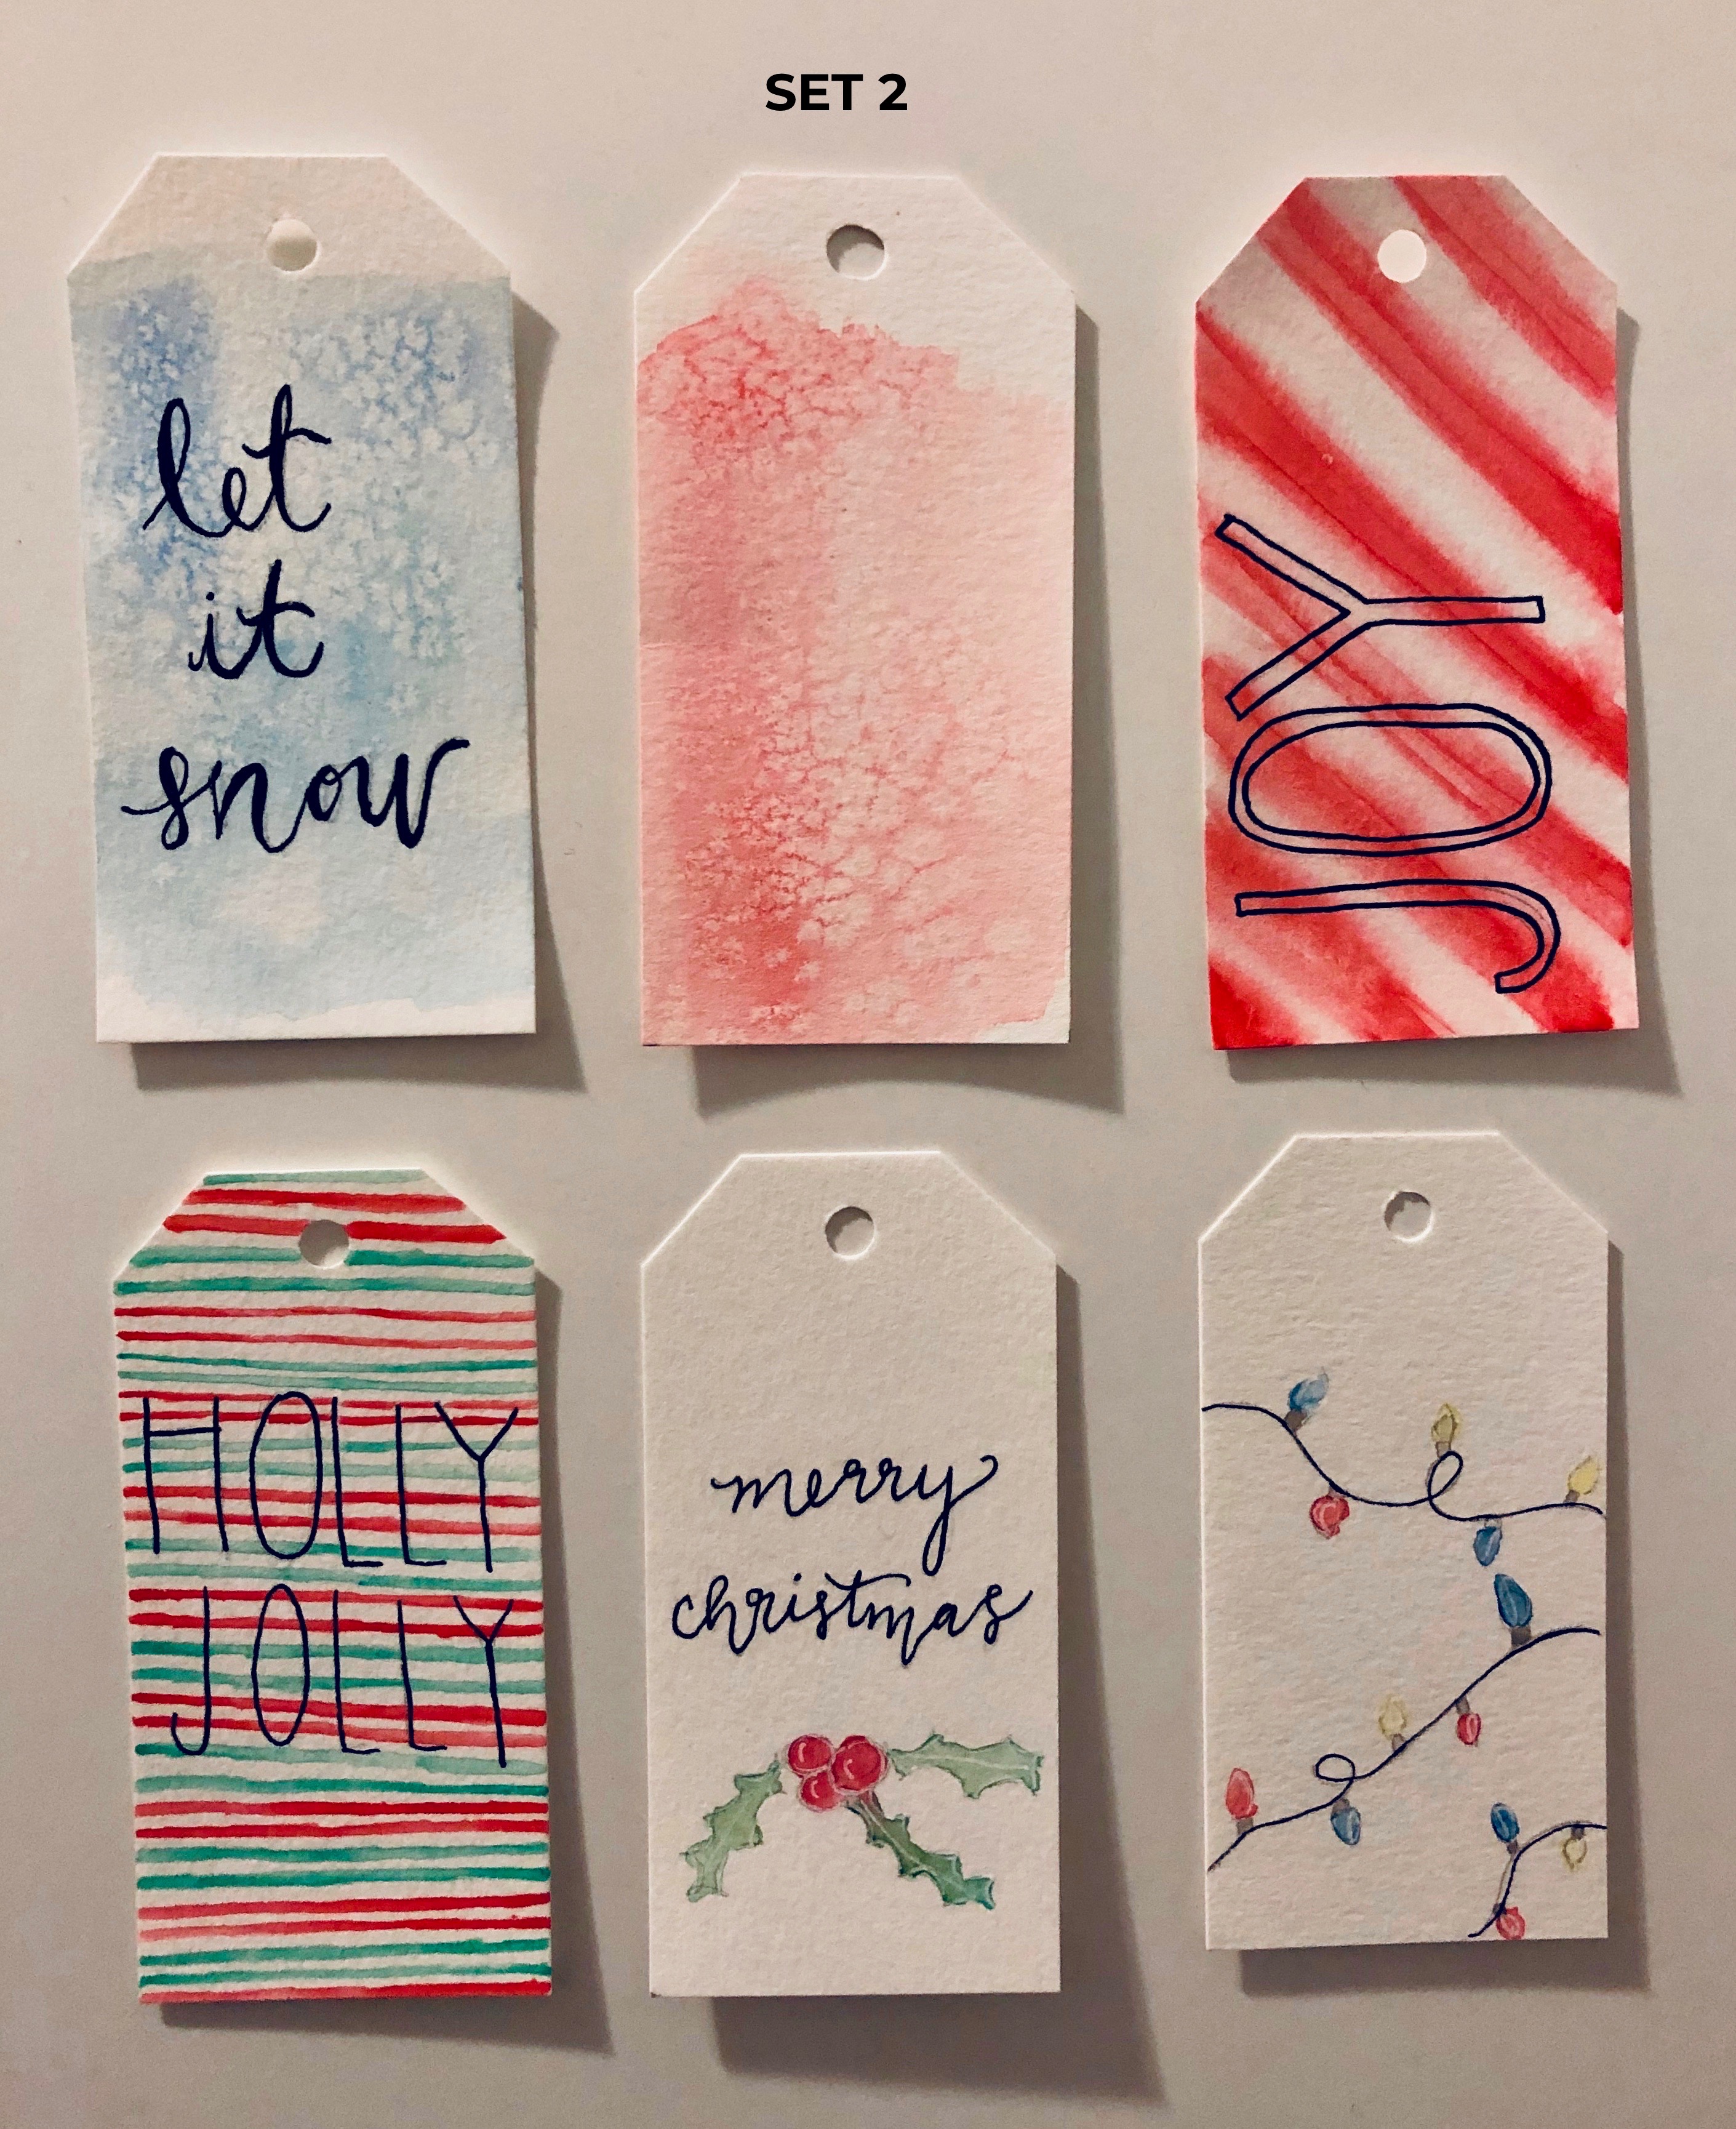 SET 2
let
it
snow
JOY
HOLLY
JOLLY
merry
christmas